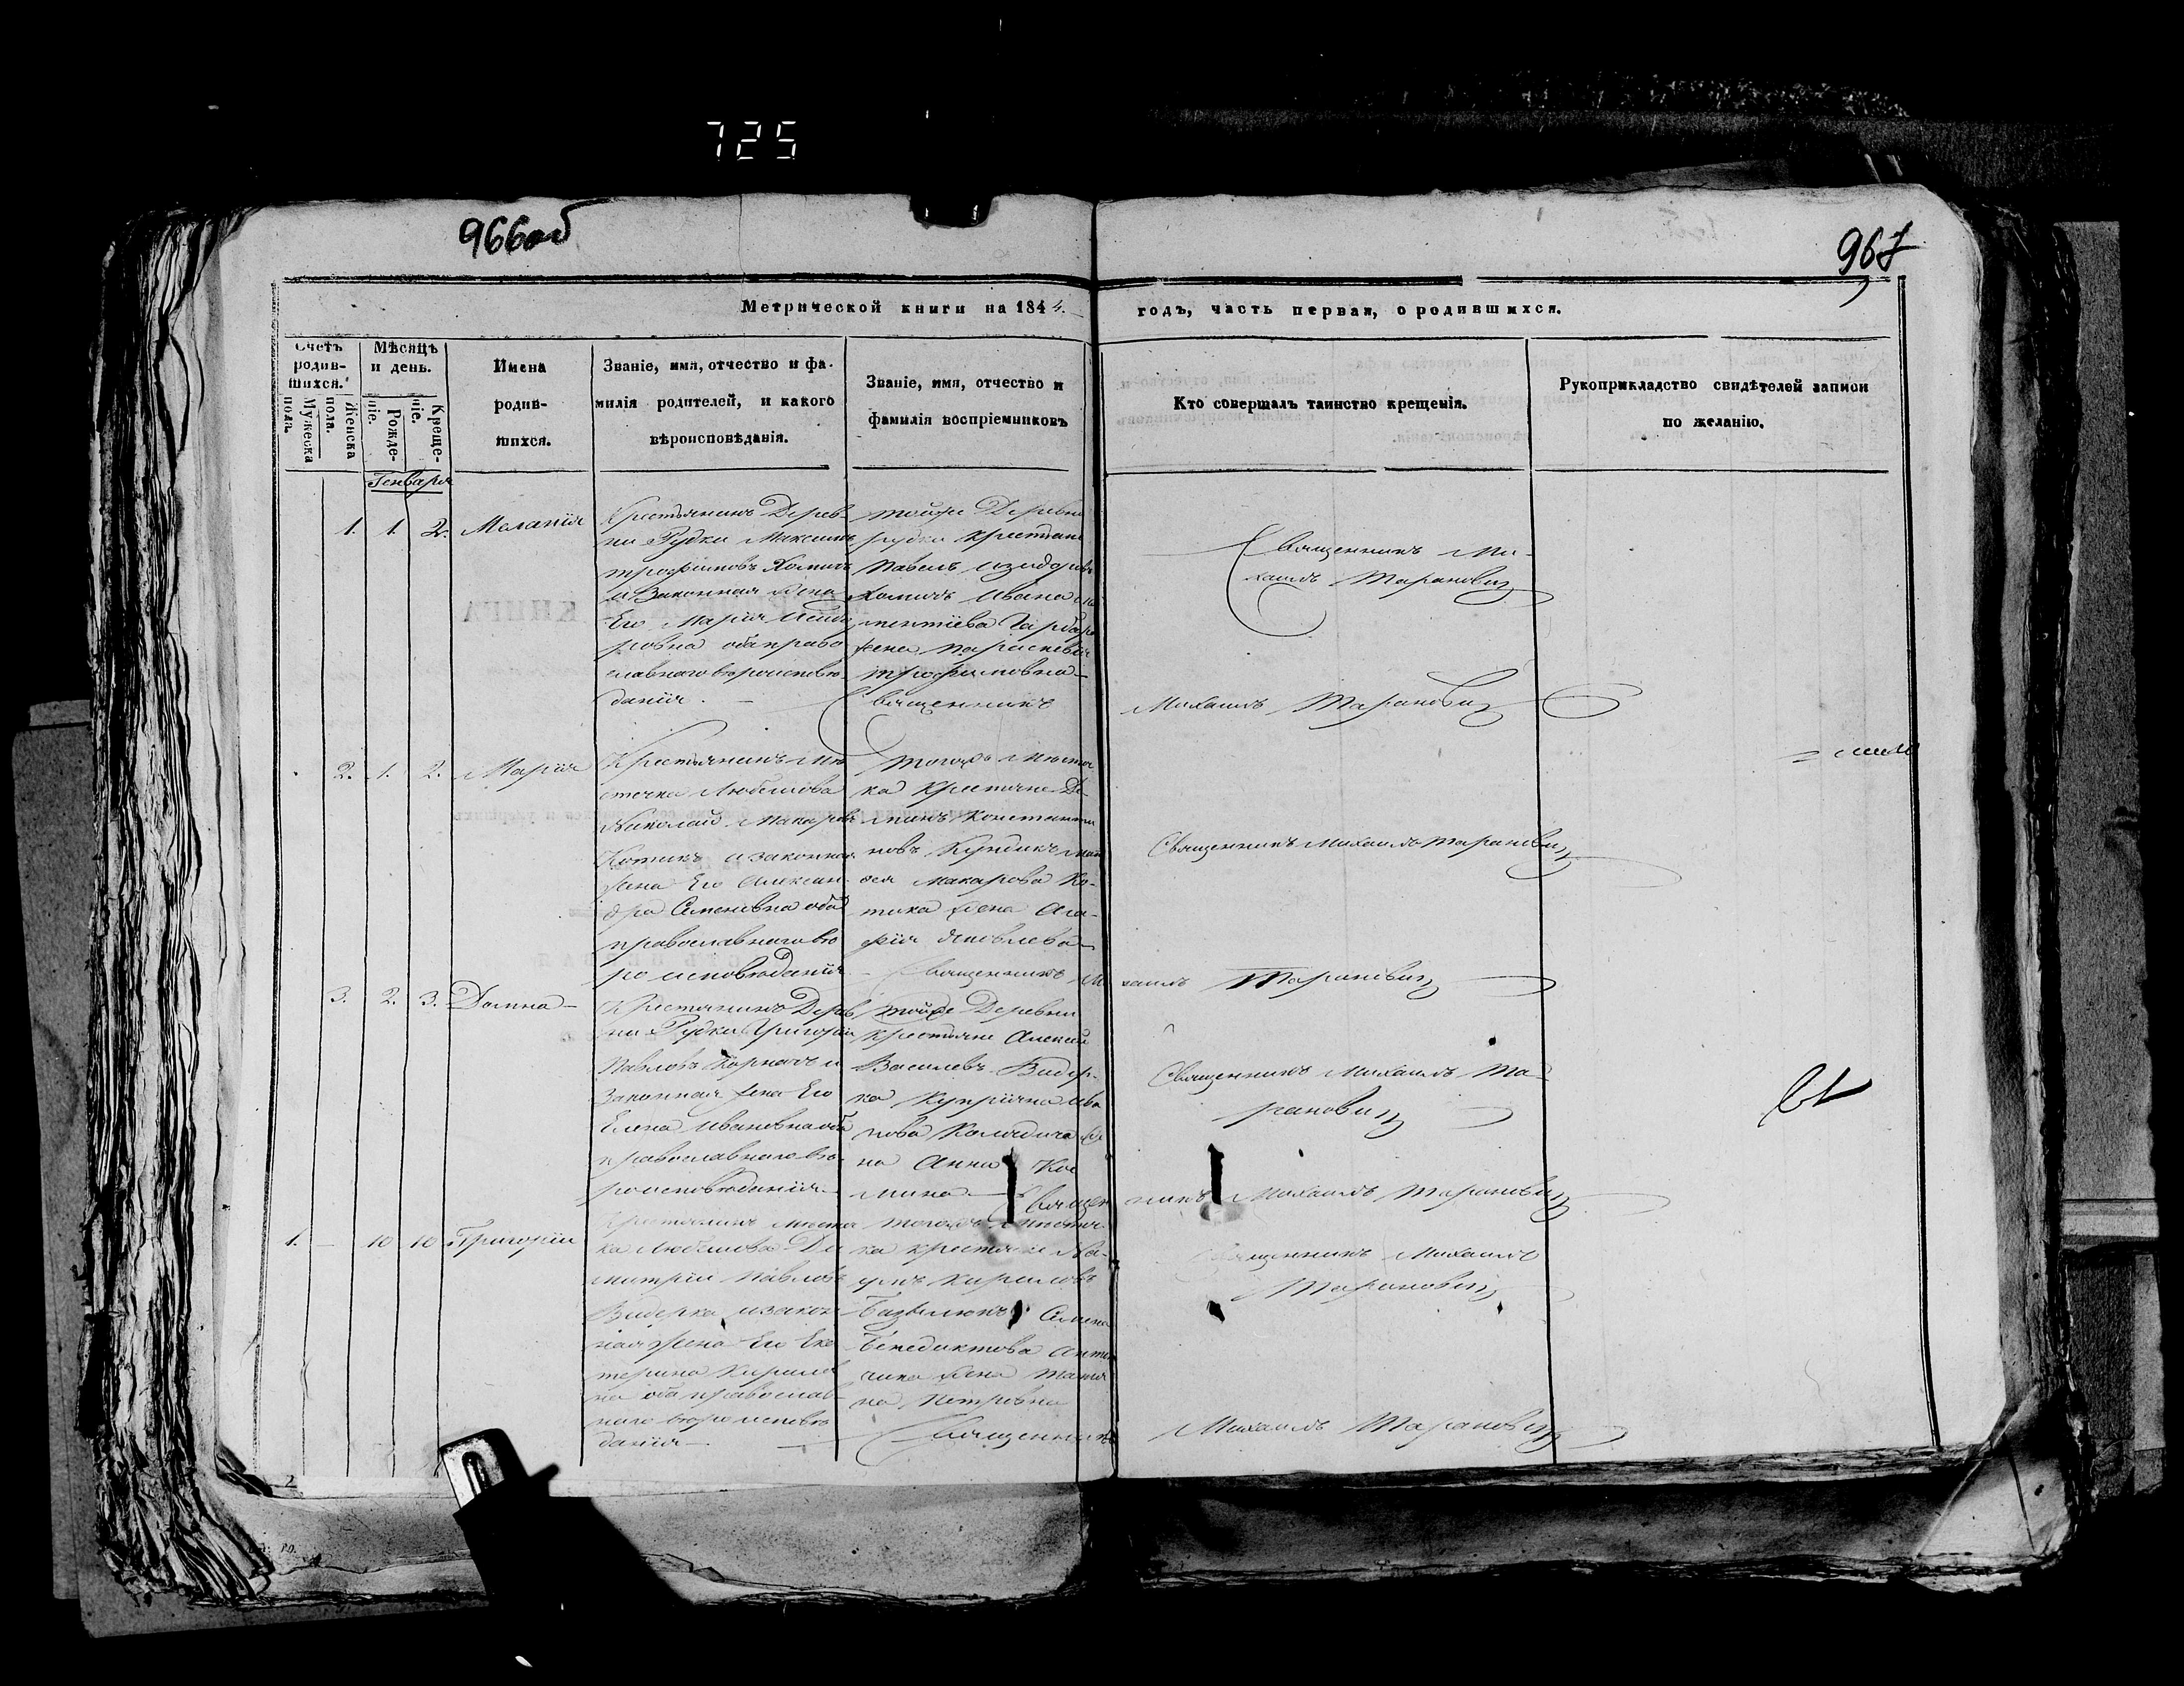 725
966об
967
Метрической книги на 1844. годъ, часть первая, о родившихся.
Счетъ родив-шихся.
Мужеска пола.
Женска пола.
Мѣсяцъ и день.
Рожде-ніе.
Креще-ніе.
Имена
родив-
шихся.
Званіе, имя, отчество и фа-
милія родителей, и какого
вѣроисповѣданія.
Званіе, имя, отчество и
фамилія воспріемниковъ
Кто совершалъ таинство крещенія.
Рукоприкладство свидѣтелей записи
по желанію.
Генваря
1. 1. 2. Меланія
Крестьянинъ Дерев-
ни Рудки Максимъ
Трофимовъ Хомичъ
и Законная Жена
Его Марія
ровна оба право
славнаго вѣроисповѣ-
данія.
тойже Деревни
Рудки Крестьяне
Павелъ
Хомичъ Ивана
жена Параскевія
Трофимовна
Священникъ Ми-
хаилъ Таранович
Священникъ Михаилъ Таранович
2. 1. 2. Марія
Крестьянинъ Мѣ
стечка Любешова
Николай Макаровъ
Котикъ и законная
жена Его Алексан-
дра Семеновна оба
православнаго вѣ
роисповѣданія
тогожъ Мѣстеч
ка Крестяне Де
Константи
новъ
Макарова Ко-
тика жена Ага-
фія Яковлева
Священникъ Михаилъ Таранович
Священникъ Михаилъ Таранович
3. 2. 3. Домна
Крестянинъ Дерев
ни Рудки Григорій
Павловъ Корначъ и
Законная жена Его
Елена Ивановна оба
православнаго вѣ-
роисповѣданія
тойже Деревни
Крестяне Алексей
Василевъ Видер-
ка Купріяна Ива
нова
на Анна
Священникъ Михаилъ Та-
ранович
Священникъ Михаилъ Таранович
1. 10 10 Григорій
Крестянинъ мѣстеч
ка Любешова Ди
митрій Павловъ
Видерка и закон
ная жена Его Ека
терина Кирилов
на оба православ-
наго вѣроисповѣ
данія
тогожъ мѣстеч
ка крестяне На-
умъ Кириловъ
Семена
Бенедиктова
жена Татя
на Петровна
Священникъ Михаилъ
Таранович
Священникъ Михаилъ Таранович